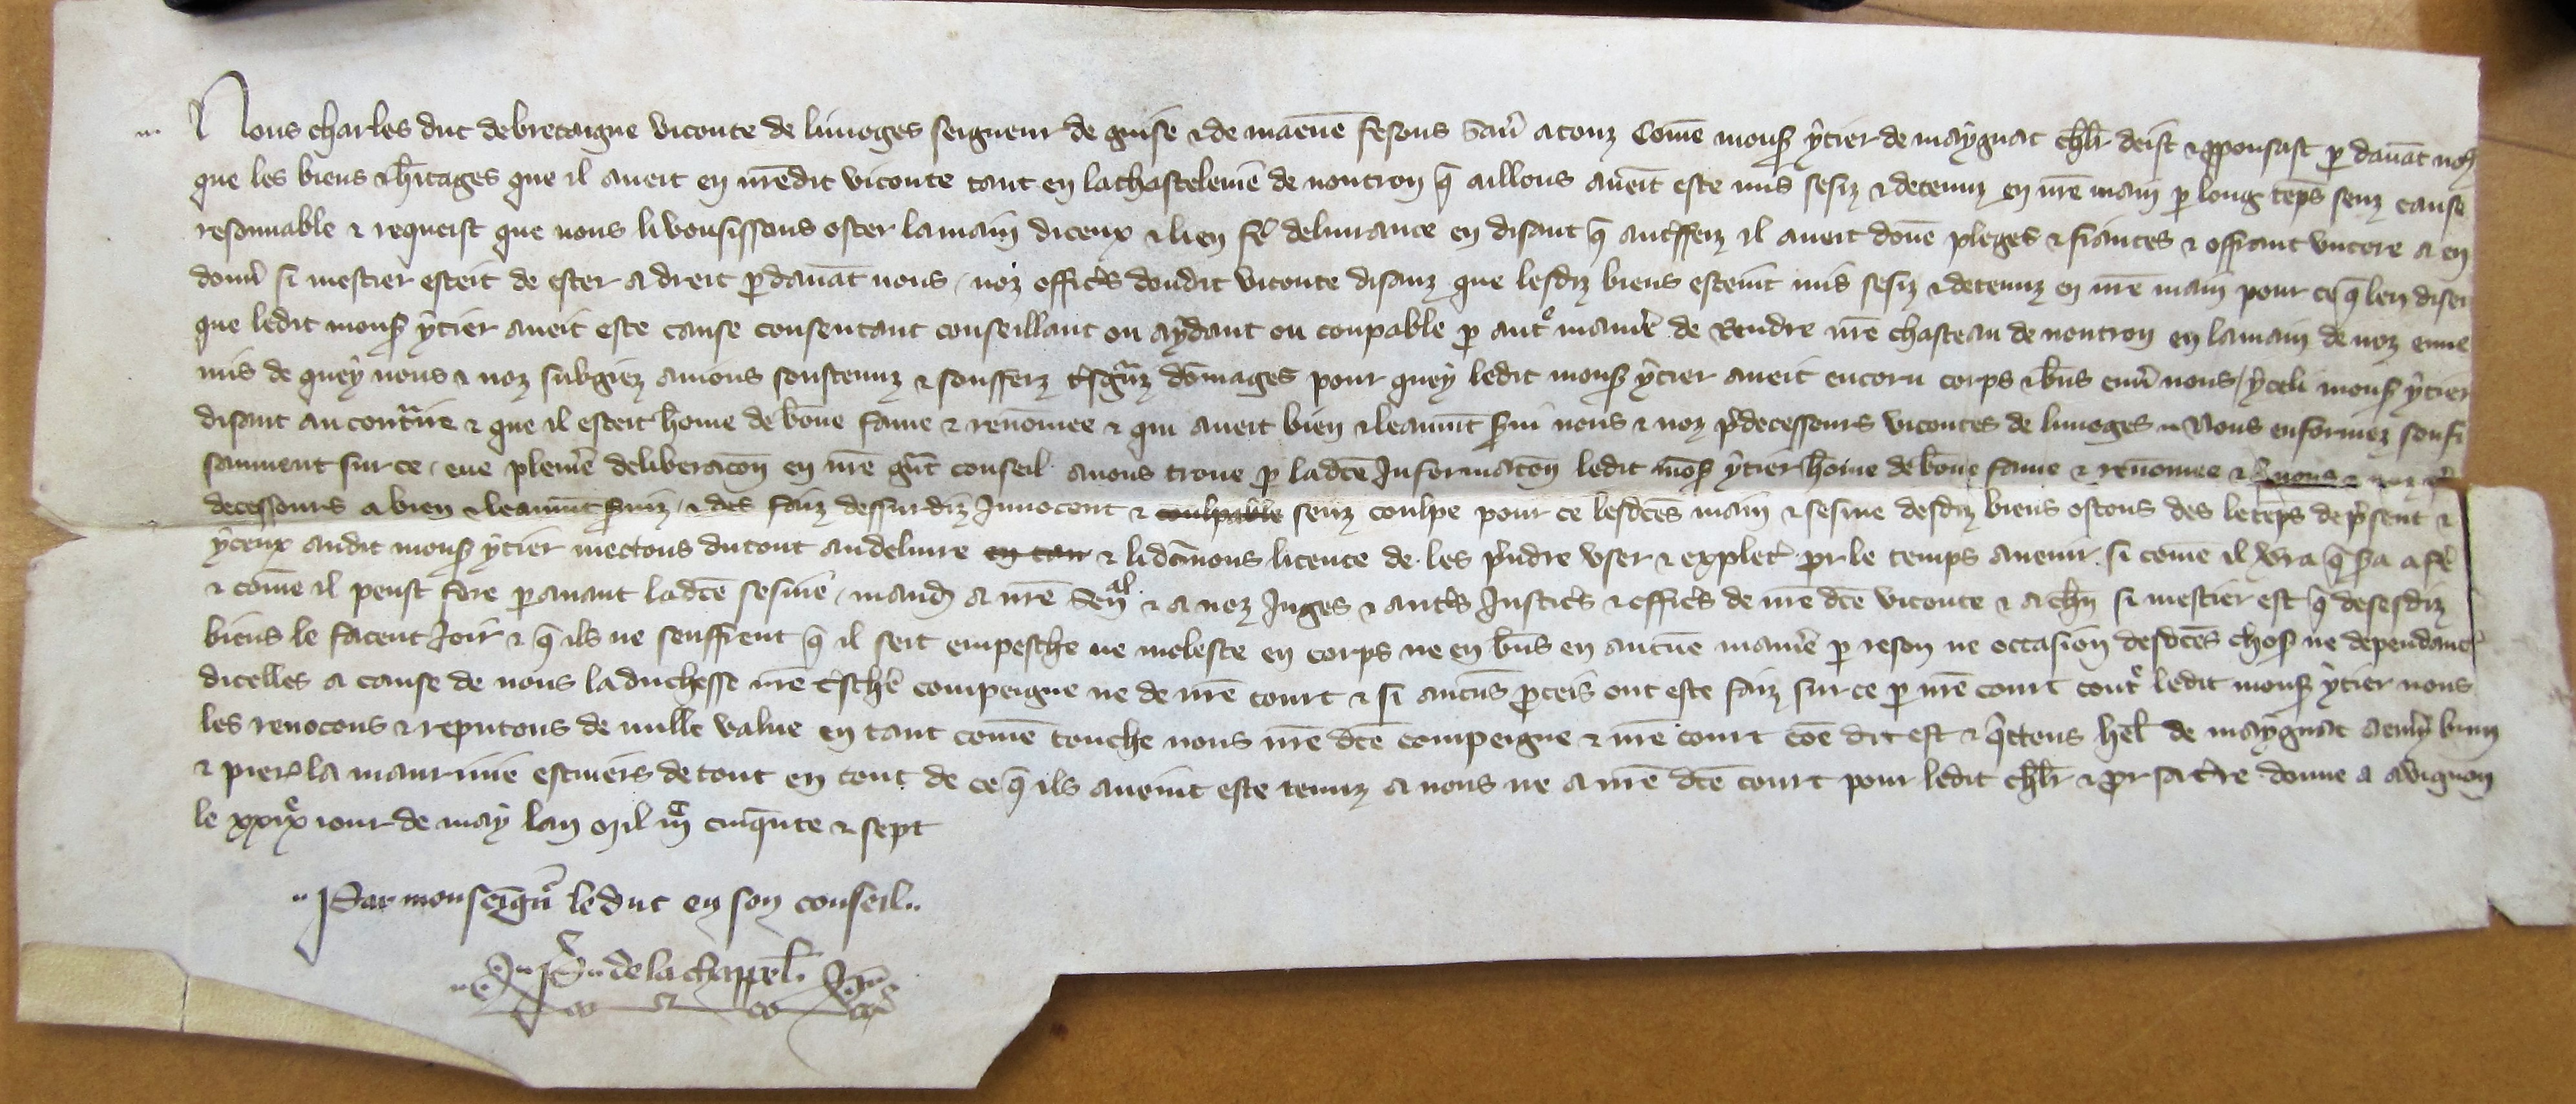 Nous charles duc de bretaigne viconte de limoges seigneur de guise & de maene fesons sav̄ a touz Come mons ytier de maygnac chlr deist & pponsast p davāt no9
que les biens & h̄itages que il aveit en nr̄edit viconte tant en la chastelenie de nontron q̄ aillours aveīt este mis sesiz & detenuz en nr̄e main p long tēps senz cause
resonnable & requeist que nous li vousissons oster la main diceux & lien fē delivrance en disant q̄ il aveit donē pleges & fiances & offrant uncore a en
don̄ si mestier esteit de ester a dreit p davāt nous / noz offic̄s doudit viconte disanz que lesdiz biens esteint mis sesiz & detenuz en nr̄e main pour ce q̄ len disei
que ledit mons ytier aveit este cause consentant conseillant ou aydant ou coupable p aut̄ manīe de Rendre nr̄e chasteau de nontron en la main de noz enne
mis de quey nous & noz subgiez avions soustenuz & soufferz t̄sgr̄nz dōmages pour quey ledit mons ytier aveit encoru corps & bn̄s env̄ nous / yceli mons ytier
disant au contr̄ire & que il esteit home de bōne fame & renōmee & qui aveit bien & leaumt̄ s̄vi nous & noz p̄decessours vicontes de limoges .. Nous enformez soufi
saument sur ce . eue plenīe deliberacōn en nr̄e gr̄t conseil avons trove p la dc̄e Informacōn ledit mōs ytier home de bōne fame & renōmee & nous & noz p̄
decessours a bien & leaumt̄ s̄viz . & des faiz dessurdiz Innocent & coulpable senz coulpe pour ce lesdc̄es main & sesine desdiz biens ostons des le tēps de p̄sent &
yceux audit mons ytier mectons du tout au delivre en tan & li dōnons licence de les p̄ndre user & explet̄ pr le temps avenir si come il v̄ra q̄ s̄a a fē
& cōme il peust fere p avant la dc̄e sesine . mand̄ a nr̄e Sen̄al & a noz Juges & aut̄s Justic̄s & offic̄s de nr̄e dc̄e viconte & a chn̄ si mestier est q̄ desesdiz
biens le facent Joir & q̄ ils ne seuffrent q̄ il seit empesche ne moleste en corps ne en bn̄s en aucūe manīe p reson ne occasion desdc̄es chos ne dependanc̄
dicelles a cause de nous la duchesse nr̄e t̄schē compeigne ne de nr̄e court & si aucūs p̄ceis ont este faiz sur ce p nr̄e court cont̄ ledit mons ytier nous
les revocons & reputons de nulle value en tant comē touche nous nr̄e dc̄e compeigne & nr̄e court cōe dit est & q̄ttons hel de maygnac
& pier la maurinie escuiers de tout en tout de ce q̄ ils aveint este tenuz a nous ne a nr̄e dc̄e court pour ledit chlr & pr sa t̄re donne a avignon
le xxix e iour de may lan mil iiic cinq̄nte & sept
.. Par monseign̄ le duc en son conseil ..
.. P .. de la chappel